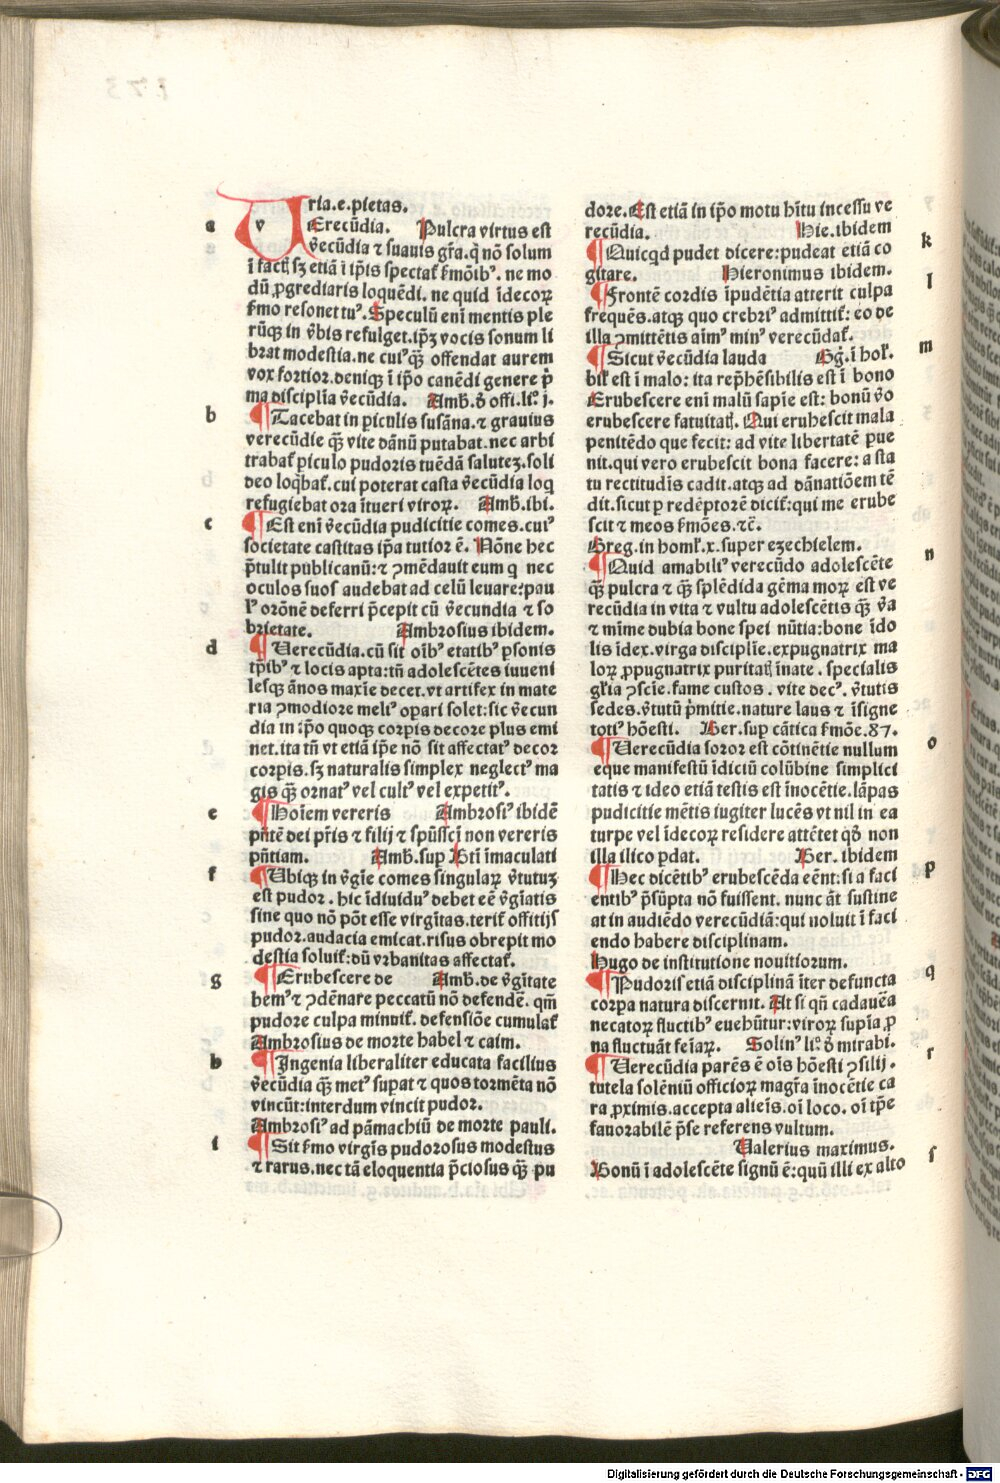 tria.e.pietas.
a
VErecūdia. Pulcra virtus est
v̄ecūdia ⁊ suauis gr̄a.q̄ nō solum
ī factꝭ sꝫ etiā ī ip̄is spectat̄ ẜmōibꝰ. ne mo
dū ꝓgrediaris loquēdi. ne quid īdecoꝝ
ẜmo resonet tuꝰ. Speculū enī mentis ple
rūqꝫ in v̄bis refulget.ip̄ꝫ vocis sonum li
brat modestia.ne cuiꝰqꝫ offendat aurem
vox fortior.deniqꝫ ī ip̄o canēdi genere p̄
ma disciplīa v̄ecūdia. Amb̄.ꝺ offi.li.º j.
b
¶Tacebat in ꝑiculis susāna.⁊ grauius
verecūdie qꝫ̄ vite dānū putabat.nec arbi
trabat̄ ꝑiculo pudoris tuēdā salutez.soli
deo loq̄bat̄.cui poterat casta v̄ecūdia loq
refugiebat ora ītueri viroꝝ. Amb̄.ibi.
c
¶Est enī v̄ecūdia pudicitie comes.cuiꝰ
societate castitas ip̄a tutior ē. Nōne hec
p̄tulit publicanū:⁊ ꝯmēdauit eum q nec
oculos suos audebat ad celū leuare:pau
lꝰ orōnē deferri p̄cepit cū v̄ecundia ⁊ so
brietate. Ambrosius ibidem.
d
¶Verecūdia.cū sit oībꝰ etatibꝰ ꝑsonis
tp̄ibꝰ ⁊ locis apta:tn̄ adolescētes iuueni
lesqꝫ ānos maxīe decet.vt artifex in mate
ria ꝯmodiore meliꝰ oꝑari solet:sic v̄ecun
dia in ip̄o quoqꝫ corpis decore plus emi
net.ita tn̄ vt etiā ip̄e nō sit affectatꝰ decor
corpis.sꝫ naturalis simplex neglectꝰ ma
gis qꝫ̄ ornatꝰ vel cultꝰ vel expetitꝰ.
e
¶Hoīem vereris Ambrosiꝰ ibidē
p̄ntē dei pr̄is ⁊ filij ⁊ spūssc̄i non vereris
p̄ntiam. Amb̄.sup Bt̄i īmaculati
f
¶Ubiqꝫ in v̄gīe comes singulaꝝ v̄tutuꝫ
est pudor. hic īdiuiduꝰ debet eē v̄gīatis
sine quo nō pōt esse virgītas.terit̄ offitijs
pudor.audacia emicat.risus obrepit mo
destia soluit̄:dū vrbanitas affectat̄.
g
¶Erubescere de Amb̄.de v̄gītate
bemꝰ ⁊ ꝯdēnare peccatū nō defendē. qm̄
pudore culpa minuit̄. defensiōe cumulat̄
Ambrosius de morte habel ⁊ caim.
h
¶Ingenia liberaliter educata facilius
v̄ecūdia qꝫ̄ metꝰ suꝑat ⁊ quos tormēta nō
vincūt:interdum vincit pudor.
Ambrosiꝰ ad pāmachiū de morte pauli.
i
¶Sit ẜmo virgīs pudorosus modestus
⁊ rarus.nec tā eloquentia p̄ciosus qꝫ̄ pu
dore.Est etiā in ip̄o motu hītu incessu ve
recūdia. Hie.ibidem
k
¶Quicqd pudet dicere:pudeat etiā co
gitare. Hieronimus ibidem.
l
¶Frontē cordis īpudētia atterit culpa
frequēs.atqꝫ quo crebriꝰ admittit̄: eo de
illa ꝯmittētis aīmꝰ minꝰ verecūdat̄.
m
¶Sicut v̄ecūdia lauda Gḡ.ī hol̄.
bil̄ est ī malo: ita rep̄hēsibilis est ī bono
Erubescere enī malū sapīe est: bonū v̄o
erubescere fatuitatꝭ. Qui erubescit mala
penitēdo que fecit: ad vite libertatē ꝑue
nit.qui vero erubescit bona facere: a sta
tu rectitudīs cadit.atqꝫ ad dānatiōem tē
dit.sicut ꝑ redēptorē dicit̄:qui me erube
scit ⁊ meos ẜmōes.⁊c̄.
Greg.in homl̄.x.super ezechielem.
n
¶Quid amabiliꝰ verecūdo adolescēte
qꝫ̄ pulcra ⁊ qꝫ̄ splēdida gēma moꝝ est ve
recūdia in vita ⁊ vultu adolescētis qꝫ̄ v̄a
⁊ mīme dubia bone spei nūtia:bone īdo
lis īdex.virga disciplīe.expugnatrix ma
loꝝ ꝓpugnatrix puritatꝭ īnate. specialis
gl̄ia ꝯscīe.fame custos. vite decꝰ. v̄tutis
sedes.v̄tutū p̄mitie.nature laus ⁊ īsigne
totiꝰ hōesti. Ber.suꝑ cātica ẜmōe.87.
o
¶Verecūdia soror est cōtinētie nullum
eque manifestū īdiciū colūbine simplici
tatis ⁊ ideo etiā testis est īnocētie.lāpas
pudicitie mētis iugiter lucēs vt nil in ea
turpe vel īdecoꝝ residere attētet qd̄ non
illa ilico ꝓdat. Ber. ibidem
p
¶Hec dicētibꝰ erubescēda eēnt:si a faci
entibꝰ p̄sūpta nō fuissent. nunc āt sustine
at in audiēdo verecūdiā:qui noluit ī faci
endo habere disciplinam.
Hugo de institutione nouitiorum.
q
¶Pudoris etiā disciplinā īter defuncta
corpa natura discernit. At si qn̄ cadauēa
necatoꝝ fluctibꝰ euehūtur:viroꝝ supīa ꝓ
na fluctuāt feīaꝝ. Solinꝰ li.º ꝺ mirabi.
r
¶Verecūdia parēs ē oīs hōesti ꝯsilij.
tutela solēniū officioꝝ magr̄a īnocētie ca
ra ꝓximis.accepta alieīs.oī loco. oī tp̄e
fauorabilē p̄se referens vultum.
Valerius maximus.
s
Bonū ī adolescēte signū ē:quū illi ex alto
Digitalisierung gefördert durch die Deutsche Forschungsgemeinschaft - DFG